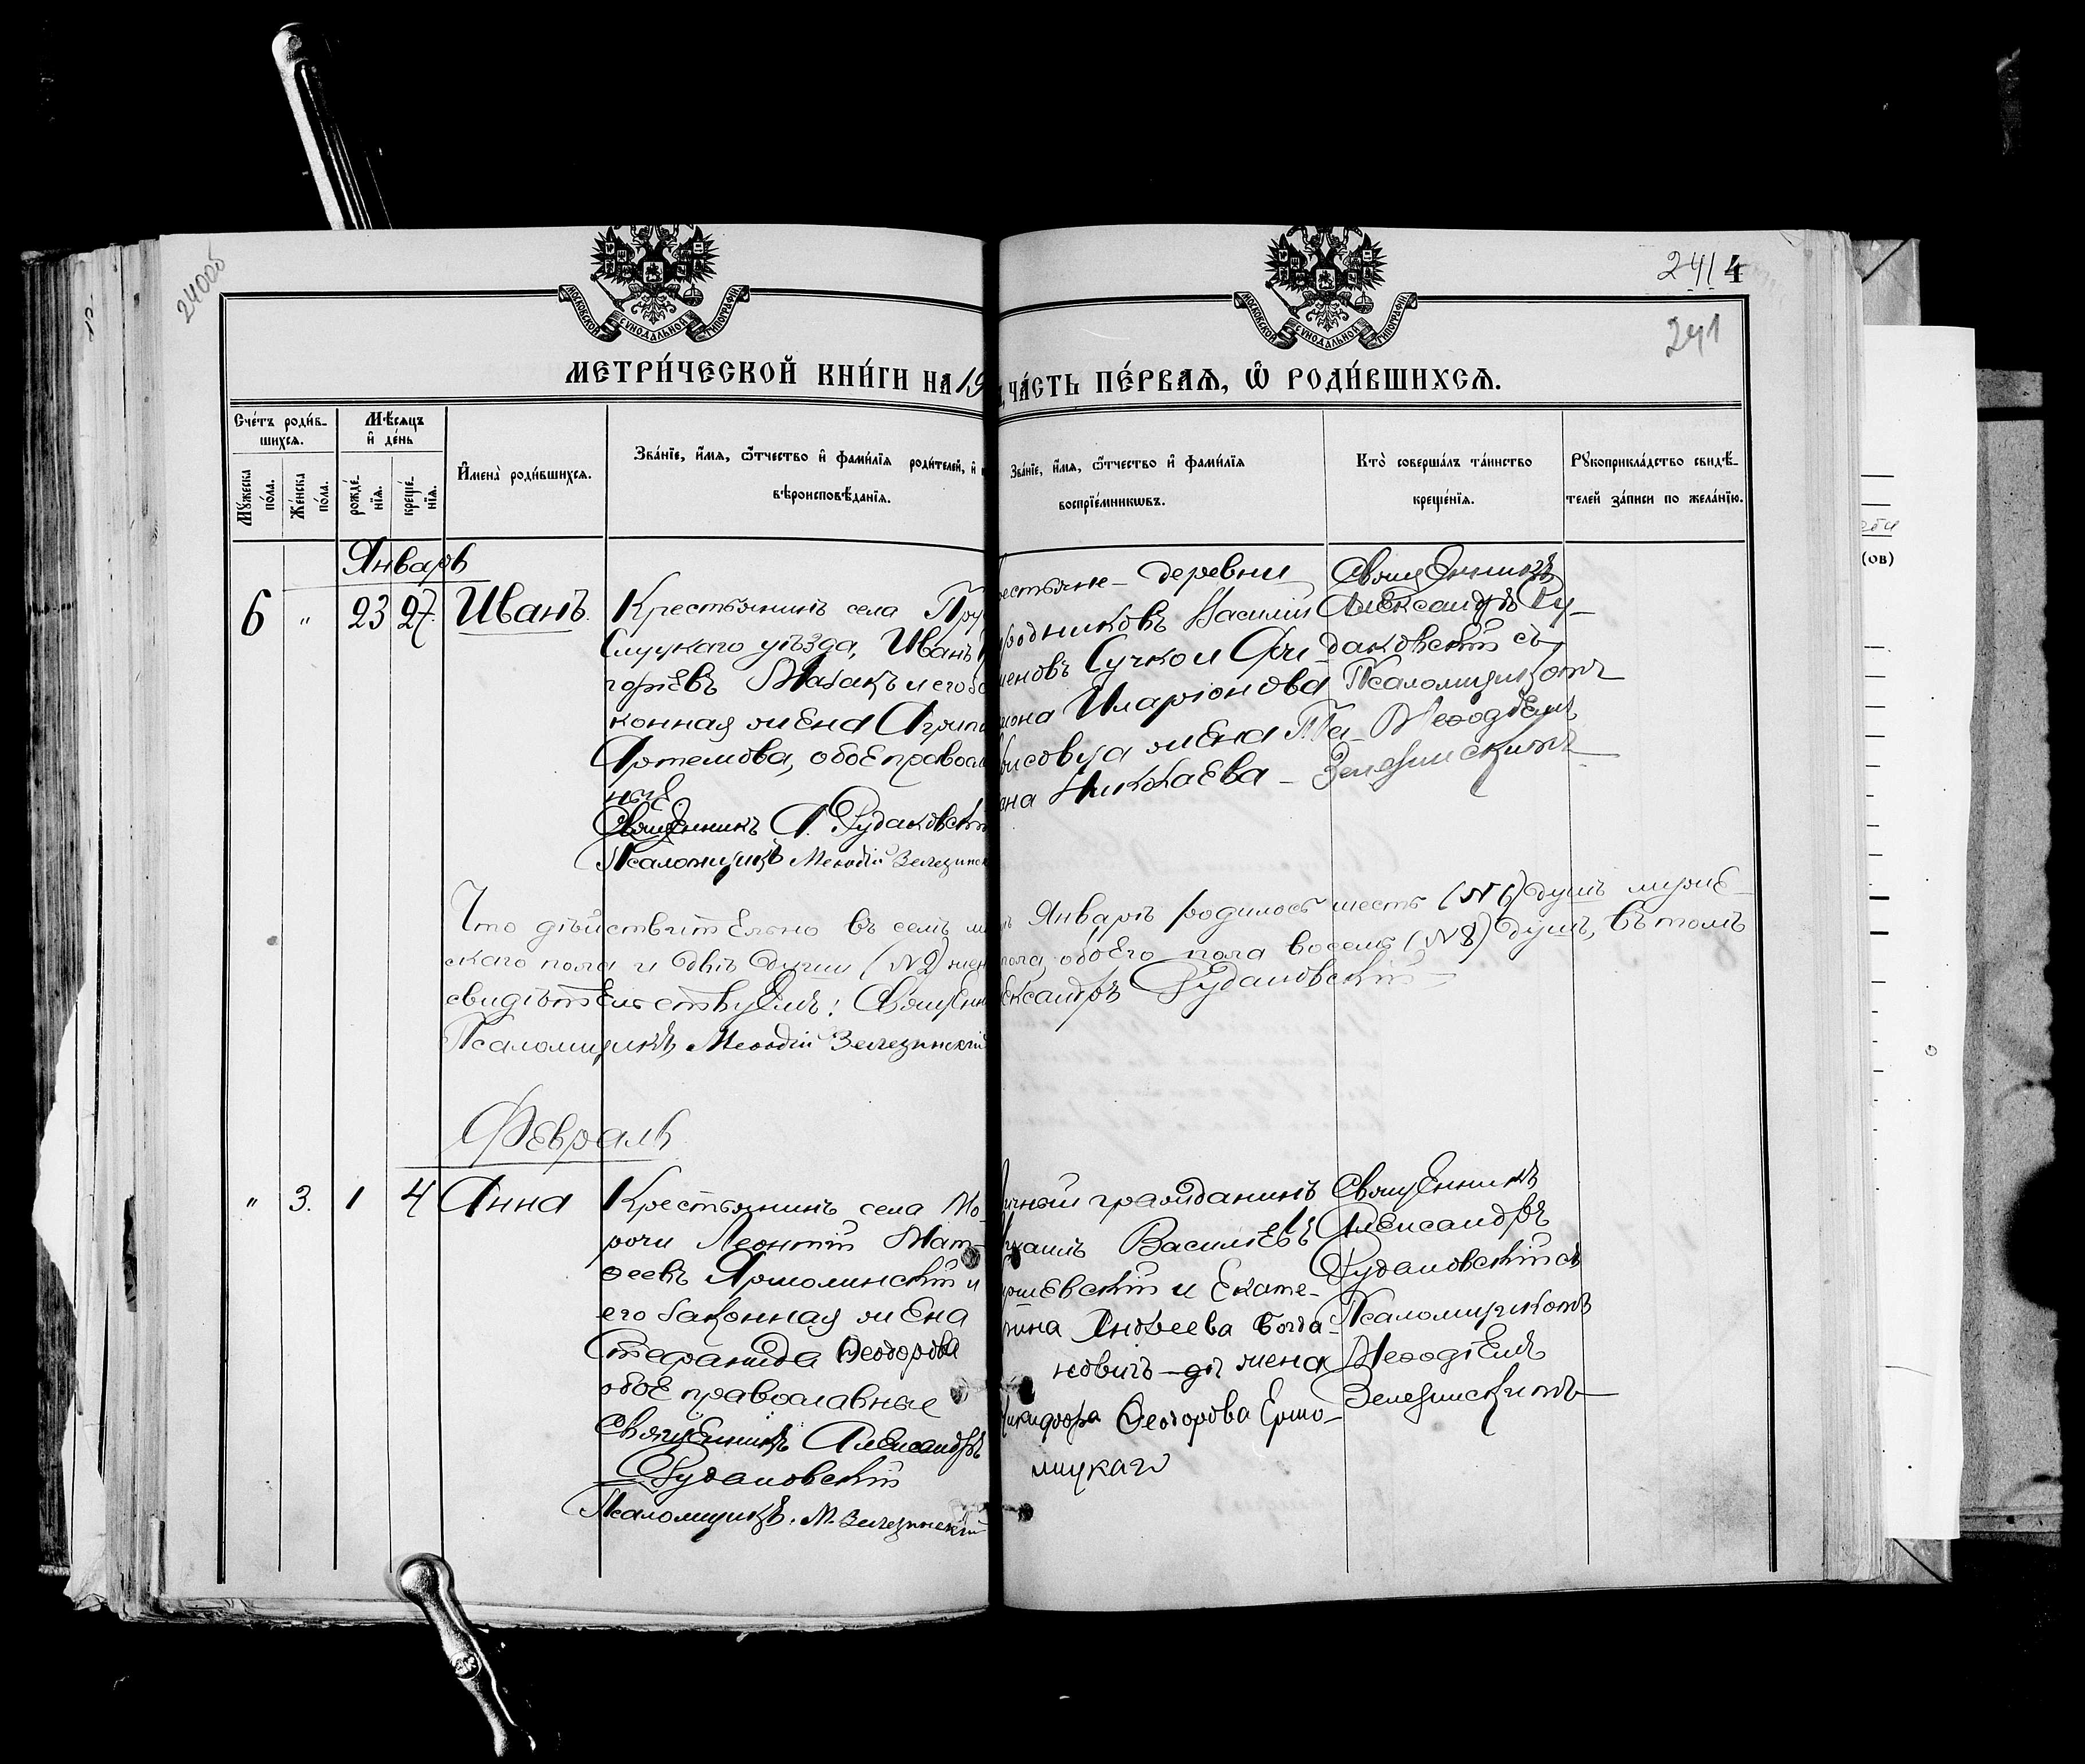 240об
241 4
241
МОСКОВСКОЙ СѴНОДАЛЬНОЙ ТИПОГРАФІИ
МОСКОВСКОЙ СѴНОДАЛЬНОЙ ТИПОГРАФІИ
МЕТРИ́ЧЕСКОЙ КНИ́ГИ НА 19
ЧА́СТЬ ПЕ́РВАѦ, Ѡ҆ РОДИ́ВШИХСѦ.
Сче́тъ роди́в-
шихсѧ.
Мꙋ́жеска
по́ла.
Же́нска
по́ла.
Мѣ́сѧцъ
и҆ де́нь
рожде́-
нїѧ.
креще́-
нїѧ.
И҆мена̀ роди́вшихсѧ.
Зва́нїе, и҆́мѧ, ѻ҆́тчество и҆ фами́лїѧ роди́телей, и҆
вѣроисповѣ́данїѧ.
Зва́нїе, и҆́мѧ, ѻ҆́тчество и҆ фами́лїѧ
воспрїе́мникѡвъ.
Кто̀ соверша́лъ та́инство
креще́нїѧ.
Рꙋкоприкла́дство свидѣ́-
телей за́писи по жела́нїю.
Январь
6 " 23 27. Иванъ.
Крестьянинъ села
Слуцкаго уѣзда, Иванъ
горіевъ Мазакъ и его за
конная жена Агрип
Артемова, обое правосл
ные
Священникъ А. Рудаковскій
Псаломщикъ Меѳодій Зелезинск
естьяне - деревни
родниковъ Василій
меновъ Сучко и Фи-
мона Иларіонова
рисовца жена Та-
ана Николаева -
Священникъ
Александръ Ру-
даковскій съ
Псаломщикомъ
Меѳодіемъ
Зелезинскимъ
Что дѣйствительно въ семъ м
ь Январѣ родилось шесть (№ 6) душъ муже-
скаго пола и двѣ души (№ 2) жен
пола, обоего пола восемь (№ 8) душъ, въ томъ
свидѣтельствуемъ: Священн
ександръ Рудаковскій
Псаломщикъ Меѳодій Зелезинскій
Февраль
" 3. 1 4 Анна
Крестьянинъ села Мо-
рочи Леонтій Мат-
ѳеевъ Ярмолинскій и
его законная жена
Стефанида Ѳеодорова
обое православные
Священникъ Александръ
Рудаковскій
Псаломщикъ. М. Зелезинскій
ичный гражданинъ
хаилъ Васильевъ
шевскій и Екате-
рина Андреева Богда-
новичъ - да жена
Никифора Ѳеодорова Ермо-
лицкаго
Священникъ
Александръ
Рудаковскій съ
Псаломщикомъ
Меѳодіемъ
Зелезинскимъ
(ов)